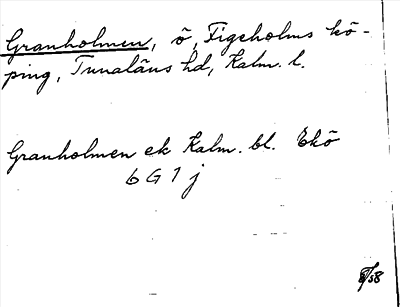 Granholmen, ö, Figeholms kö-
ping, Tunaläns hd, Kalm. l.
Granholmen ek Kalm. bl. Ekö
6 G 1 j
8/58